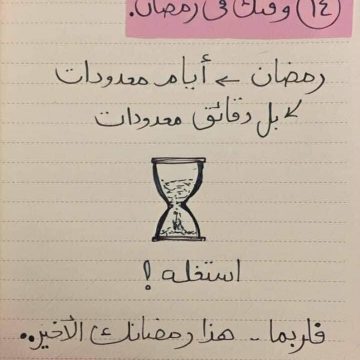 (١٤) وقتك في رمضان.
رمضان ← أيام معدودات
↙ بل دقائق معدودات
استغله !
فلربما - هذا رمضانك الأخير..